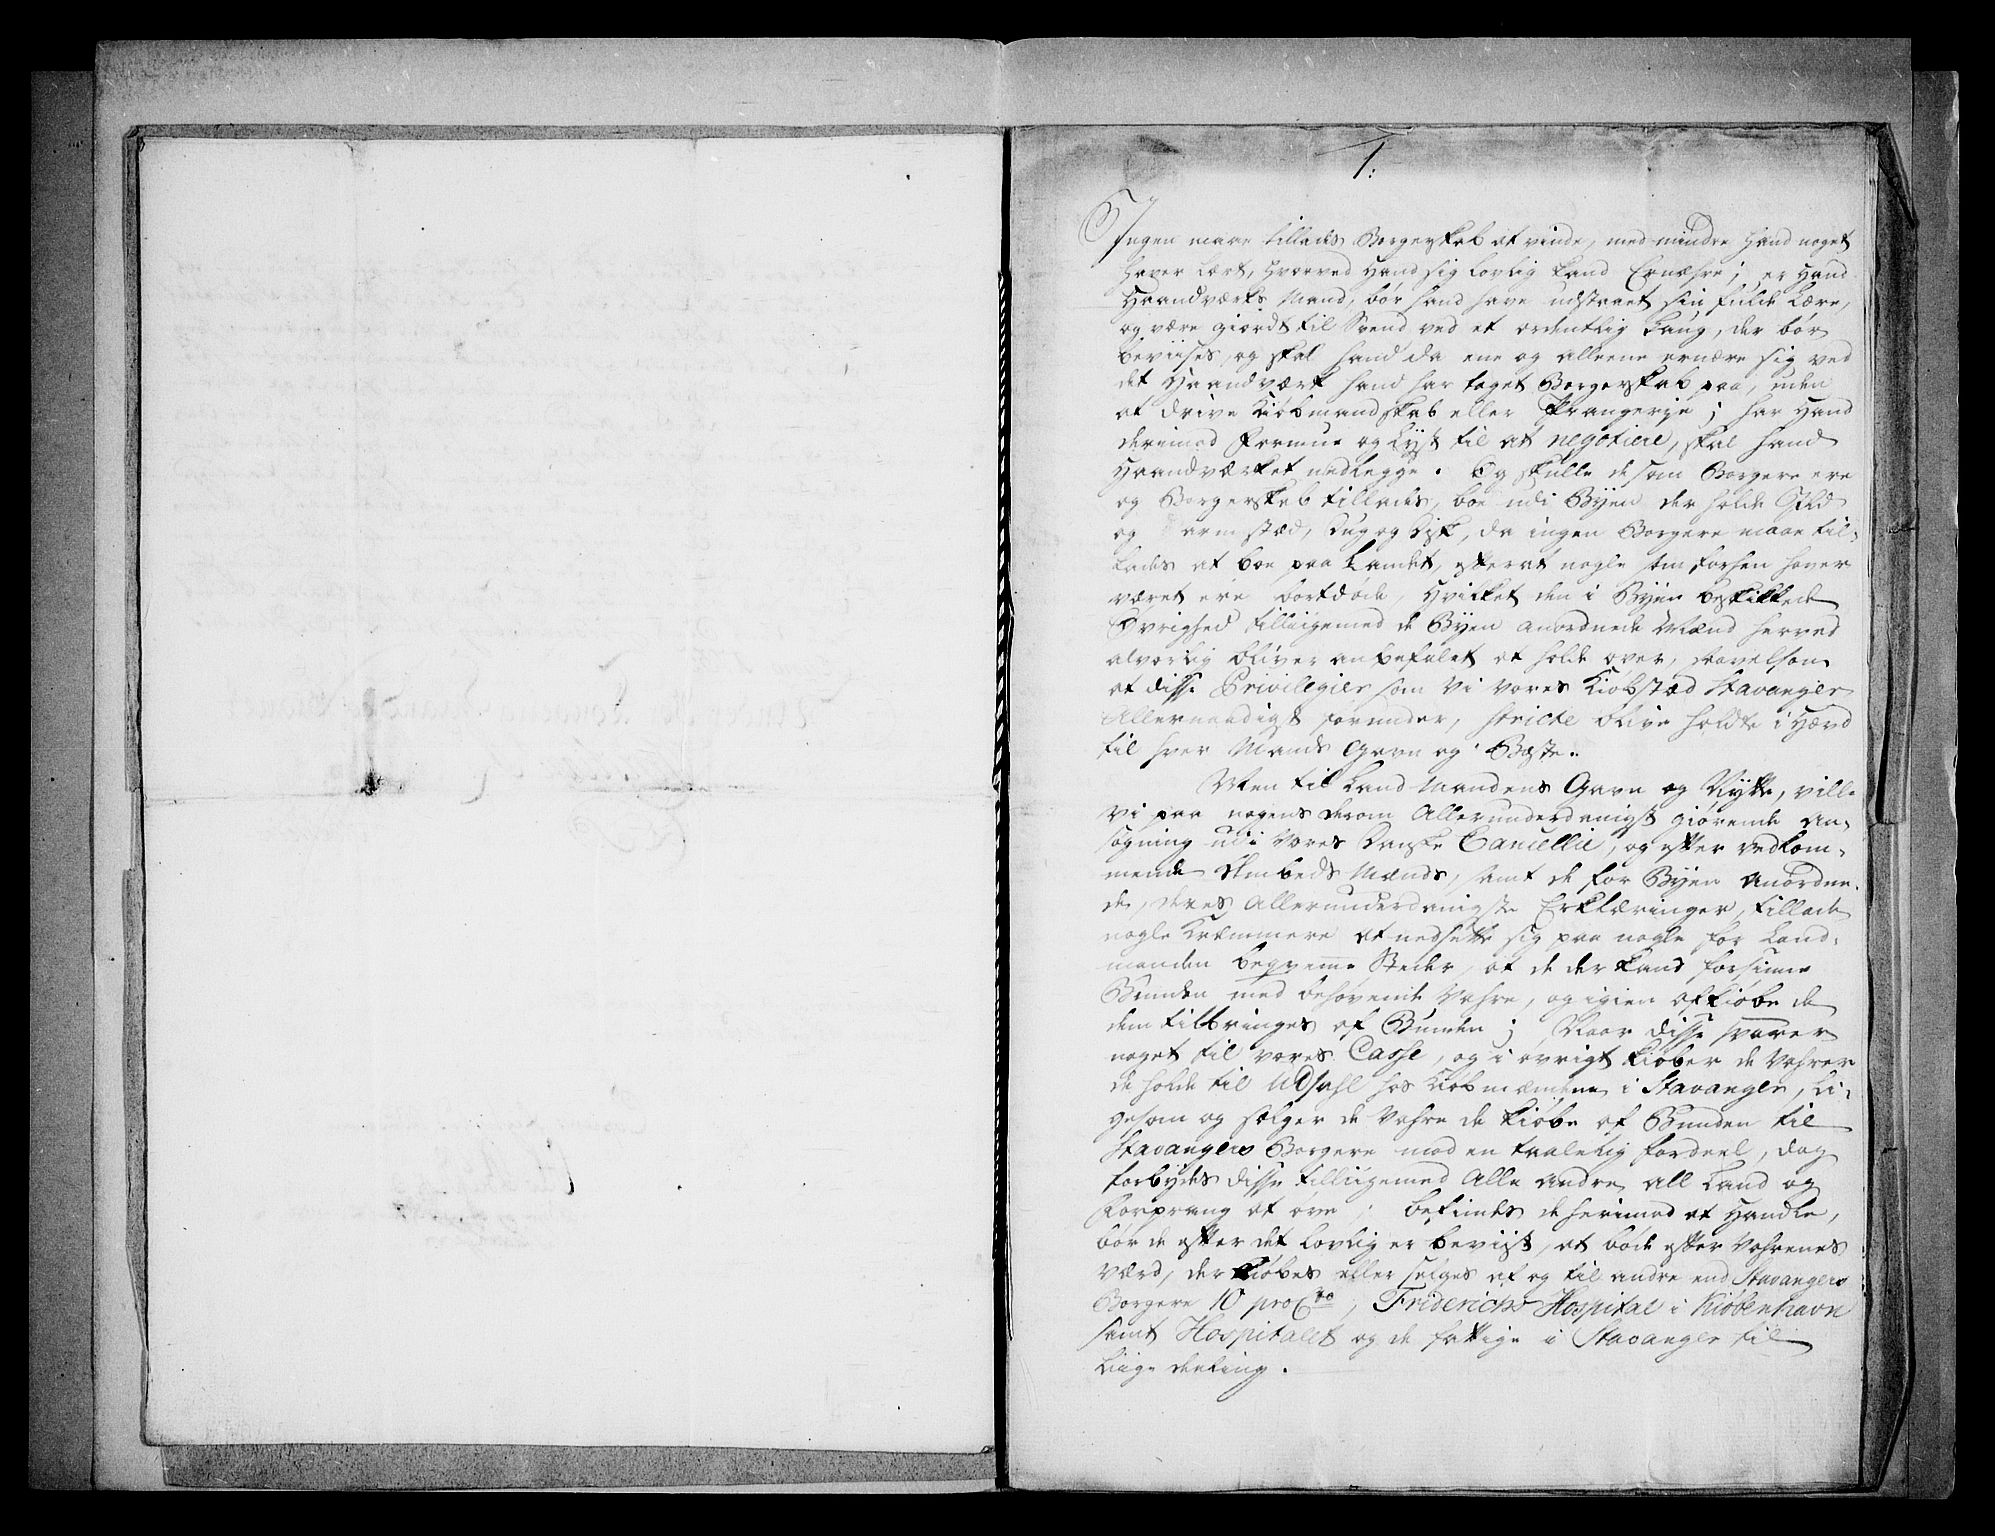 1:
Ingen maae tillades Borgerskab at vinde, med mindre hand noget
haver Lært, hvorved hand sig lovlig kand Ernæhre; er hand
Haandværks Mand, bør hand have udstaaet sin fulde Lære,
og være giordt til Svend ved et ordentlig Laug, der bør
beviises, og skal hand da ene og alleene ernære sig ved
det Haandværk hand har taget Borgerskab paa, uden
at drive Kiøbmandskab eller Prangerie; har Hand
derimod Formue og Lyst til at negotiere, skal hand
Haandværket nedlegge. Og skulle de som Borgere ere
og Borgerskab tillades, boe udi Byen der holde Ild
og arnestæd, Dug og Disk, da ingen Borgere maae til-
lades at boe paa Landet, efterat nogle som forhen haver
været ere bortdøde, hvilket den i Byen beskikkede
Øvrighed tilliigemed de Byen anordnede Mænd herved
alvorlig bliver anbefalet at holde over, saavelsom
at disse Privilegier som Vi vores Kiøbstæd Stavanger
Allernaadigst forunder, stricte blive holdte i Hævd
til hver Mands Gavn og Beste.
Men til Land Mandens Gavn og Nytte, ville
Vi paa nogens derom Allerunderdanigst giørende An-
søgning udi Vores Danske Cancellie, og efter vedkom-
mende Embeds Mænds, samt de for Byen Anordne-
de, deres Allerunderdanigste Erklæringer, tillade
nogle Kræmmere at nedsette sig paa nogle for Land-
manden beqvemme Steder, at de der kand forsiune
Bunden med behøvende Vahre, og igien afkiøbe de
dem tilbringes af Bunden; Naar disse svarer
noget til vores Casse, og i øvrigt kiøber de Vahrer
de holde til Udsahl hos Kiøbmændene i Stavanger, li-
gesom og sælger de Vahre de kiøbe af Bunden til
Stavangers Borgere mod en taalelig fordeel, dog
forbydes disse tilliigemed Alle andre all Land og
Forprang at øve; befindes de herimod at Handle,
bør de efter det lovlig er beviist, at bøde efter Vahrenes
værd, der kiøbes eller selges af og til andre end Stavangers
Borgere 10 pro C<sup>to</sup>, Friderichs Hospital i Kiøbenhavn
samt Hospitalet og de fattige i Stavanger til
Liige deeling.